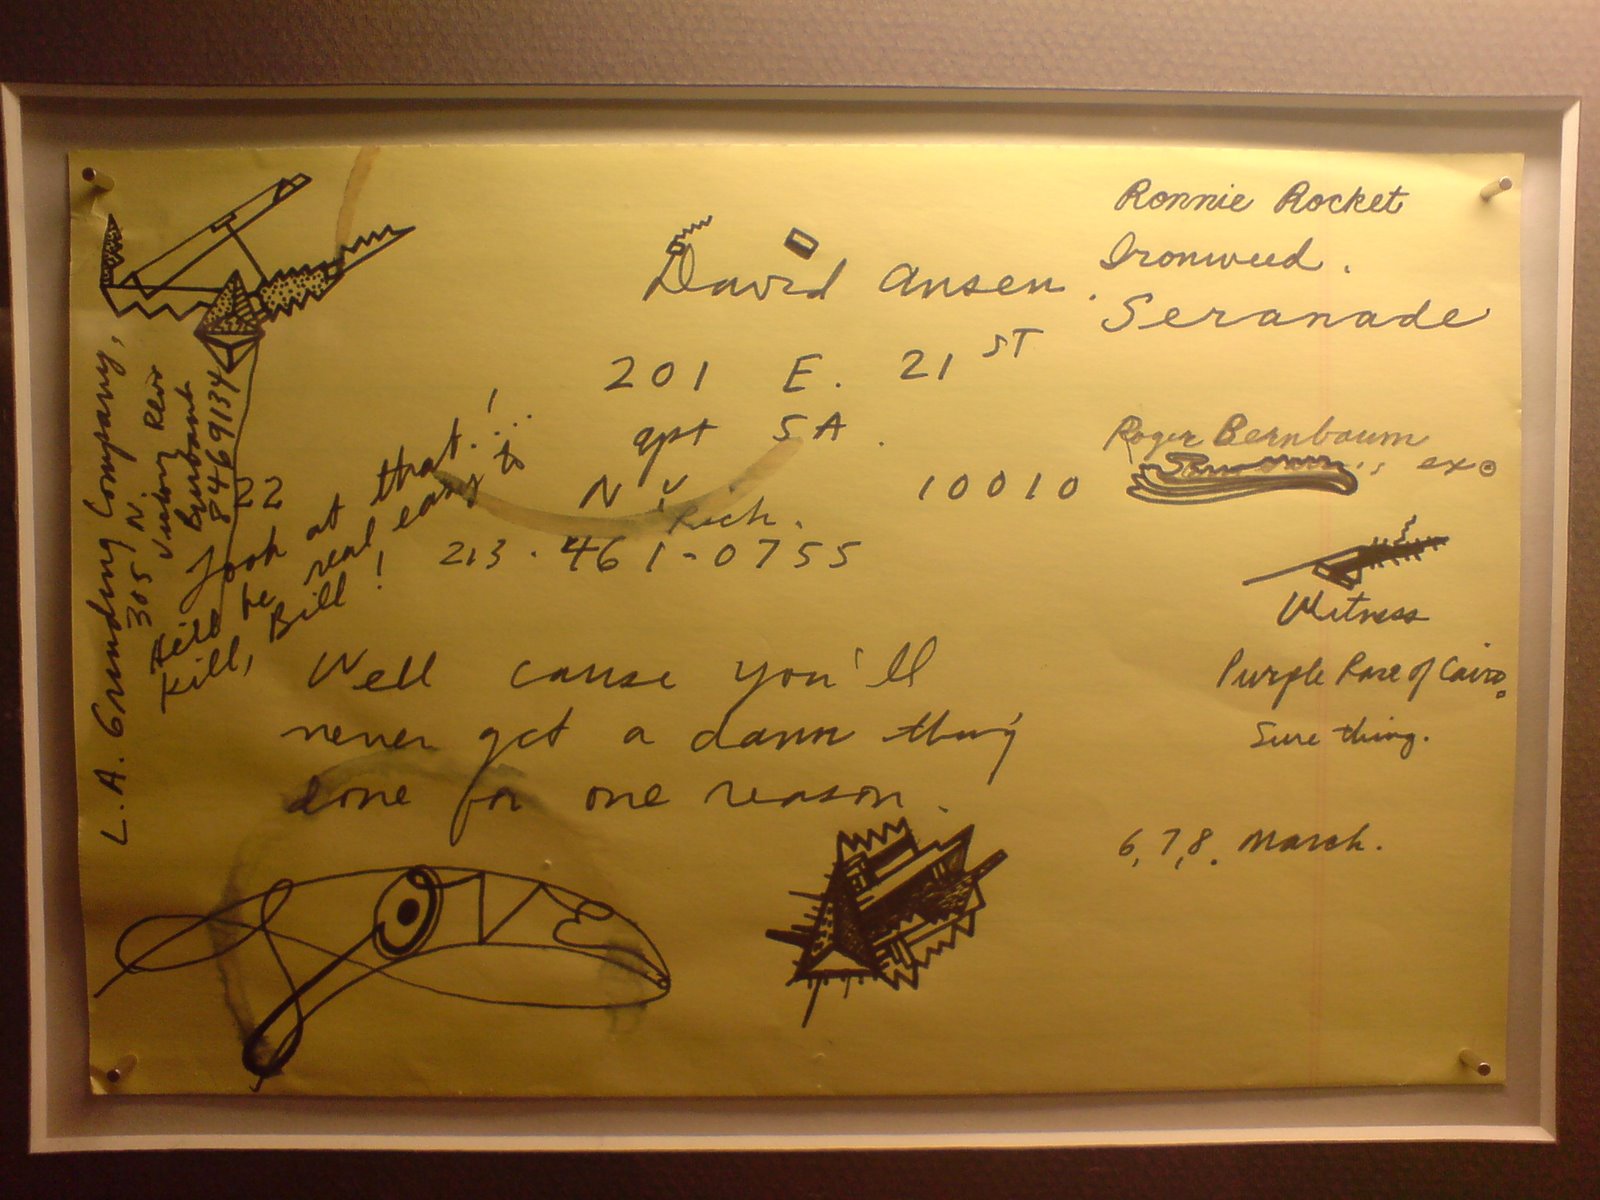 Ronnie Rocket
Ironweed.
Seranade
David Ansen.
201 E. 21 ST
apt 5A.
N Y 10010
Rich.
213.461-0755
Roger Bernbaum
ex
Witness
Purple Rose of Cairo.
Sure thing.
6,7,8. March.
L.A. Company,
305 N.
Burbank
8469134
22
Look at that!...
He'd be real easy to
kill, Bill!
Well cause you'll
never get a damn thing
done for one reason.